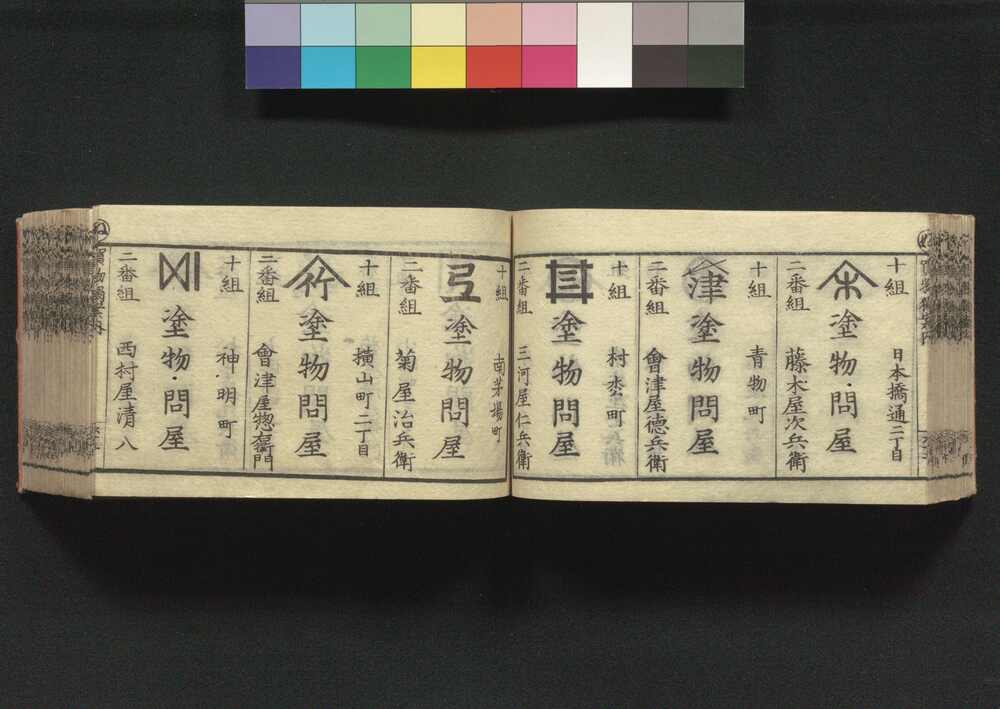 十組 日本橋通二丁目
塗物問屋
二番組 藤木屋次兵衛
十組 青物町
津 塗物問屋
二番組 會津屋德兵衛
十組 村松町
塗物問屋
二番組 三河屋仁兵衛
十組 南茅場町
塗物問屋
二番組 菊屋治兵衛
十組 横山町二丁目
竹 塗物問屋
二番組 會津屋惣右衛門
十組 神明町
塗物問屋
二番組 西村屋清八